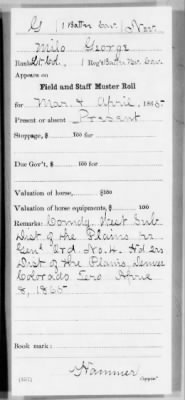 G | 1 Batt'n Cav. | Nev.
Milo George
Lt. Col., 1 Reg't Batt'n Nev. Cav.
Appears on
Field and Staff Muster Roll
for Mar. & April, 1865
Present or absent Present
Stoppage, $ 100 for
Due Gov't, $ 100 for
Valuation of horse, $ 100
Valuation of horse equipments, $ 100
Remarks: Comdg West Sub
Dist of the Plains
Gen'l Ord No. 4 Hd Qrs
Dist of the Plains Denver
Colorado Ter April
8, 1865
Book mark:
Hammer
(851) Copyist.